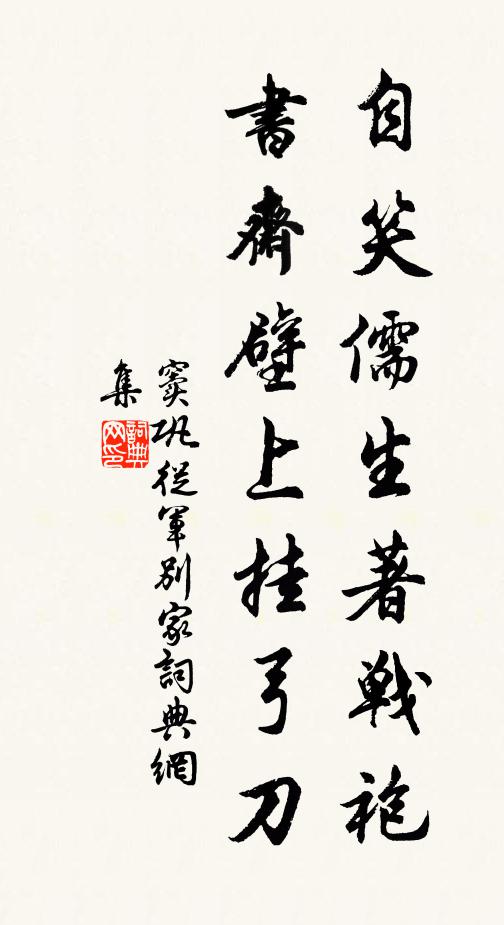 自笑儒生著戦袍
書齋壁上挂弓刀
竇巩從軍別家詞典網
集
詞典
网印